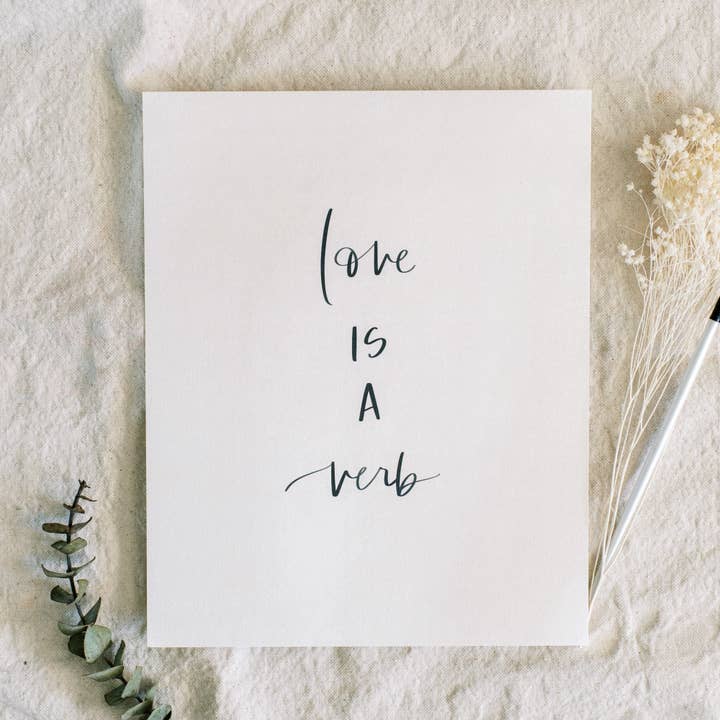 love
IS
A
verb